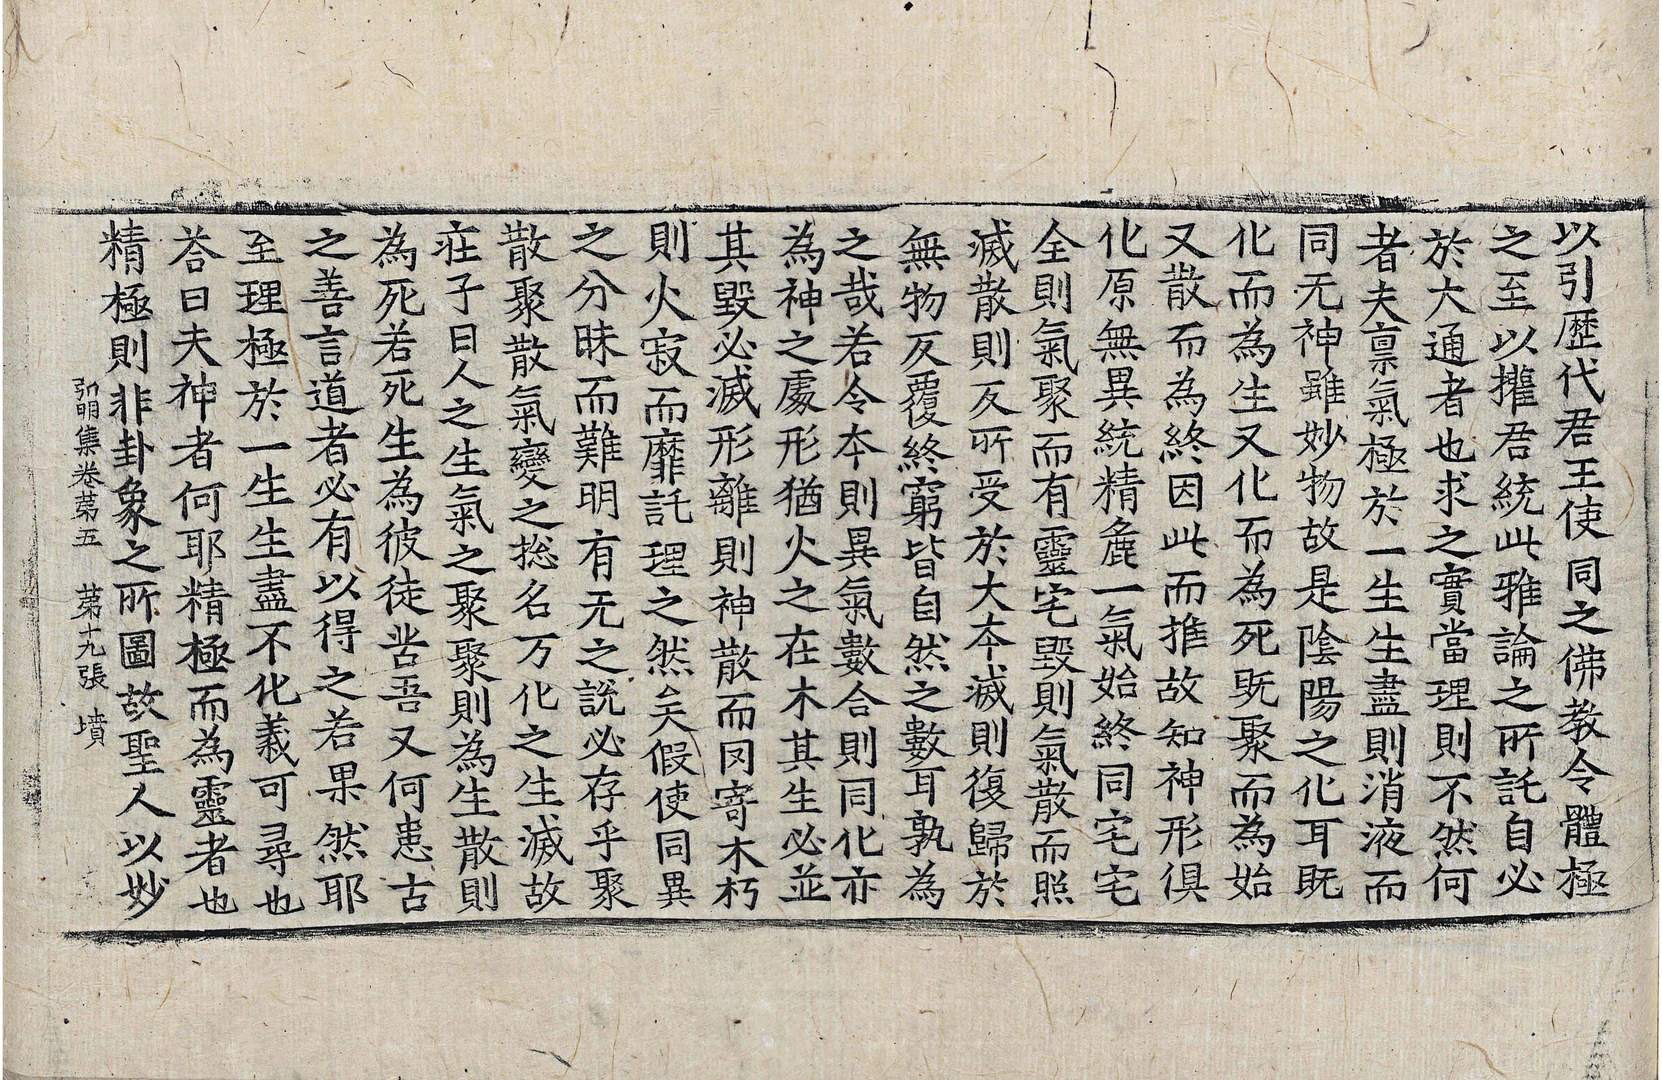 以引歷代君王使同之佛教令體極
之至以攉君統此雅論之所託自必
於大通者也求之實當理則不然何
者夫禀氣極於一生生盡則消液而
同无神雖妙物故是陰陽之化耳既
化而為生又化而為死既聚而為始
又散而為終因此而推故知神形俱
化原無異統精麁一氣始終同宅宅
全則氣聚而有靈宅毀則氣散而照
滅散則反所受於大本滅則復歸於
無物反覆終窮皆自然之數耳孰為
之哉若令本則異氣數合則同化亦
為神之處形猶火之在木其生必並
其毀必滅形離則神散而罔寄木朽
則火寂而靡託理之然矣假使同異
之分昧而難明有无之說必存乎聚
散聚散氣變之捴名万化之生滅故
莊子曰人之生氣之聚聚則為生散則
為死若死生為彼徒苦吾又何患古
之善言道者必有以得之若果然耶
至理極於一生生盡不化義可尋也
荅曰夫神者何耶精極而為靈者也
精極則非卦象之所圖故聖人以妙
弘明集卷苐五　苐十九張　墳